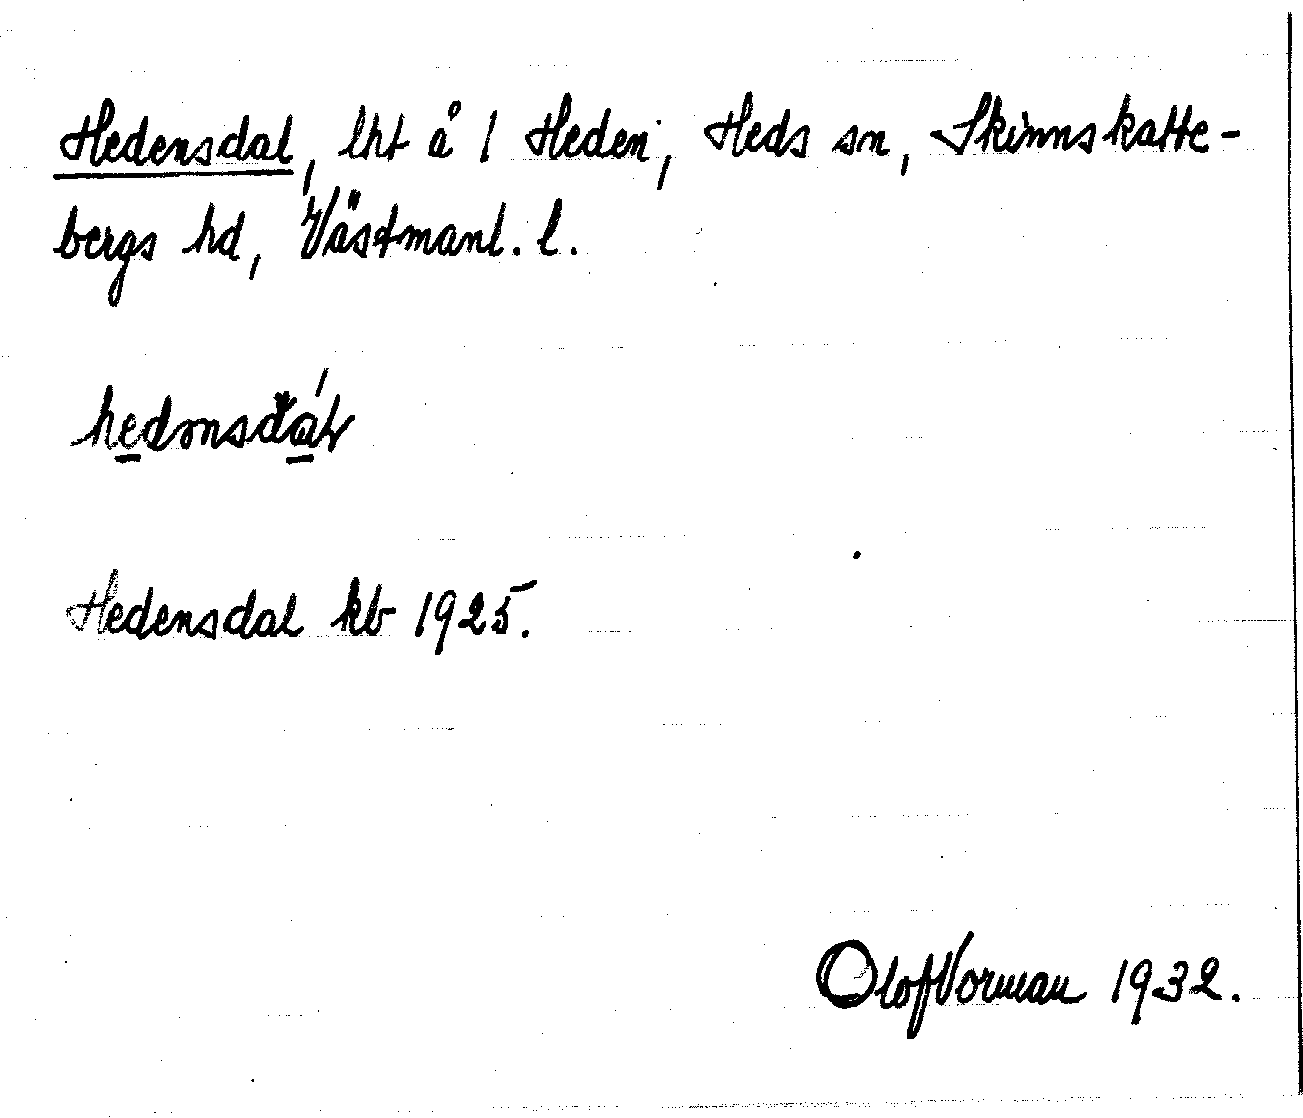 Hedensdal, lht å 1 Heden, Heds sn, Skinnskatte-
bergs hd, Västmanl. l.
Hedensdal kb 1925.
Olof Vorman 1932.